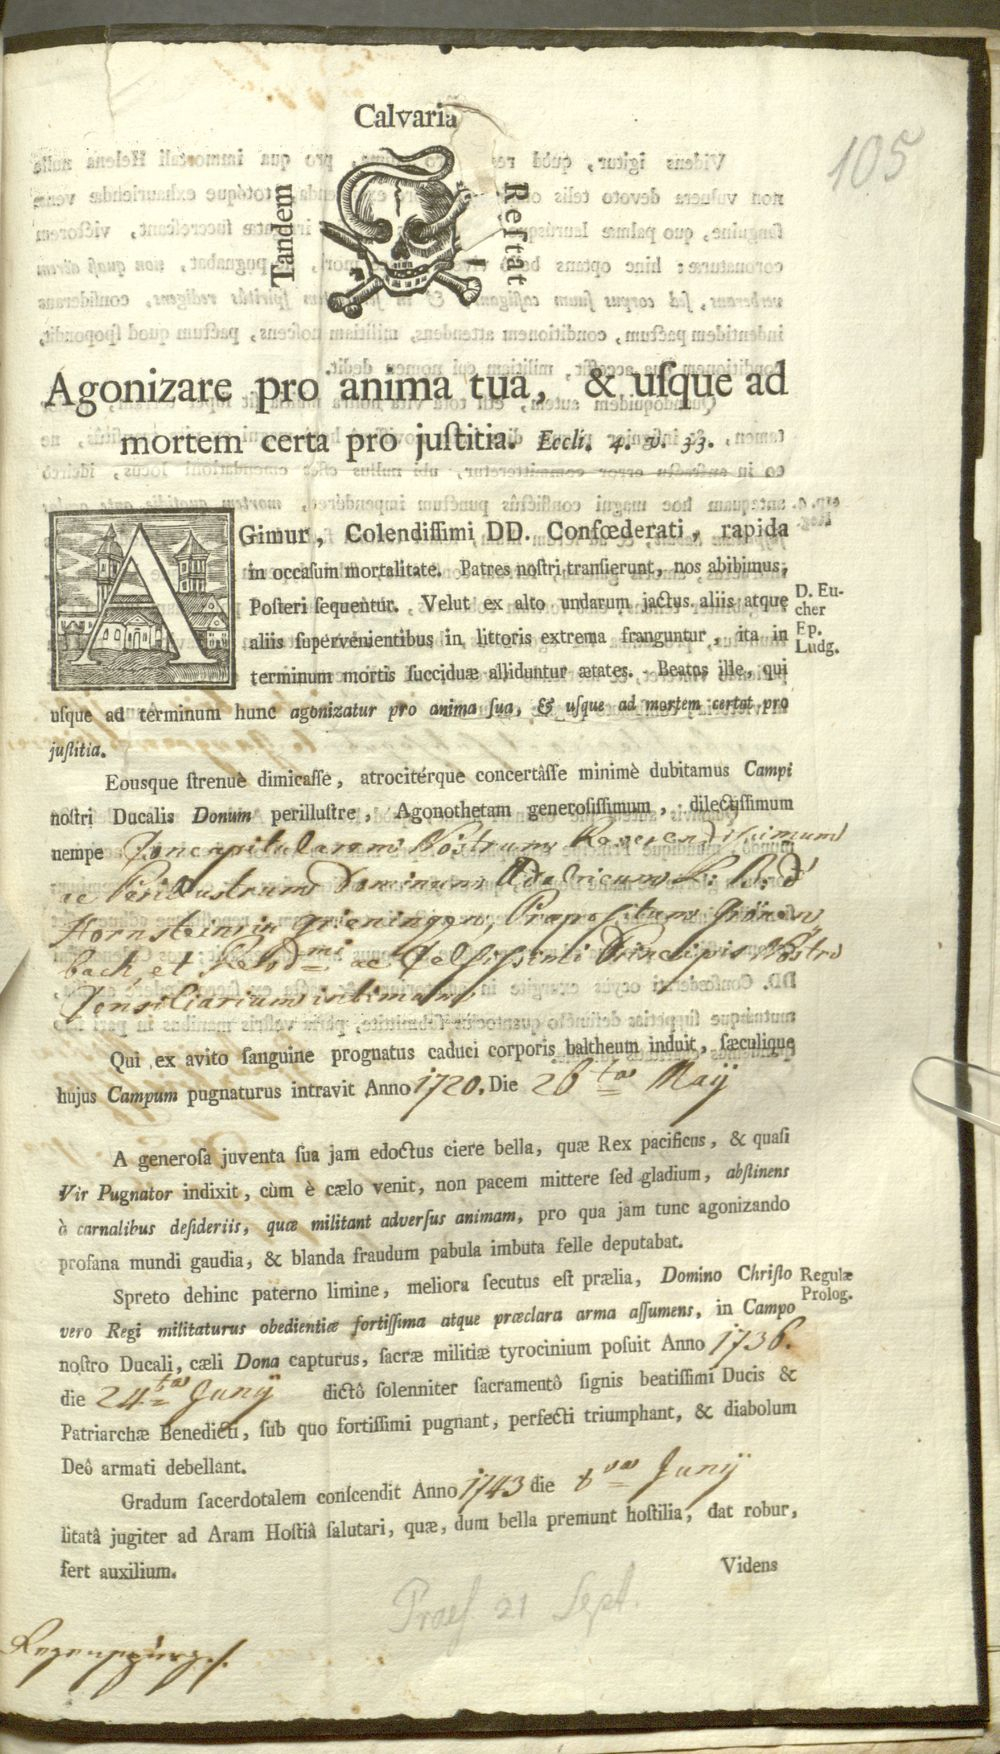 105
Calvaria
Tandem
Reſtat
Agonizare pro anima tua, & uſque ad
mortem certa pro juſtitia. Eccli. 4. v. 33.
AGimur, Colendiſſimi DD. Confœderati, rapida
in occaſum mortalitate. Patres noſtri tranſierunt, nos abibimus,
Poſteri ſequentur. Velut ex alto undarum jactus aliis atque
D. Eu-
cher
aliis ſupervenientibus in littoris extrema franguntur, ita in
Ep.
Ludg.
terminum mortis ſucciduæ alliduntur ætates. Beatus ille, qui
uſque ad terminum hunc agonizatur pro anima ſua, & uſque ad mortem certat pro
juſtitia.
Eousque ſtrenuè dimicaſſe, atrocitérque concertâſſe minimè dubitamus Campi
noſtri Ducalis Donum perilluſtre, Agonothetam generoſiſſimum, dilectiſſimum
nempe Concapitularem Nostrum Reverendissimum
ac Perillustrem Dominum Udalricum L: B: d'
Hornstein in Grieningen, Præpositum Grönen
bach, et Celsissimi Principis Nostri
Consiliarium intimum
Qui ex avito ſanguine prognatus caduci corporis baltheum induit, ſæculique
hujus Campum pugnaturus intravit Anno 1720. Die 26ta Maij
A generoſa juventa ſua jam edoctus ciere bella, quæ Rex pacificus, & quaſi
Vir Pugnator indixit, cùm è cælo venit, non pacem mittere ſed gladium, abſtinens
à carnalibus deſideriis, quæ militant adverſus animam, pro qua jam tunc agonizando
profana mundi gaudia, & blanda fraudum pabula imbuta felle deputabat.
Spreto dehinc paterno limine, meliora ſecutus eſt prælia, Domino Chriſto
Regulæ
Prolog.
vero Regi militaturus obedientiæ fortiſſima atque præclara arma aſſumens, in Campo
noſtro Ducali, cæli Dona capturus, ſacræ militiæ tyrocinium poſuit Anno 1736.
die 24ta Junij dictô ſolenniter ſacramentô ſignis beatiſſimi Ducis &
Patriarchæ Benedicti, ſub quo fortiſſimi pugnant, perfecti triumphant, & diabolum
Deô armati debellant.
Gradum ſacerdotalem conſcendit Anno 1743 die 8va Junij
litatâ jugiter ad Aram Hoſtiâ ſalutari, quæ, dum bella premunt hoſtilia, dat robur,
fert auxilium.
Videns
Praes 21 Sept.